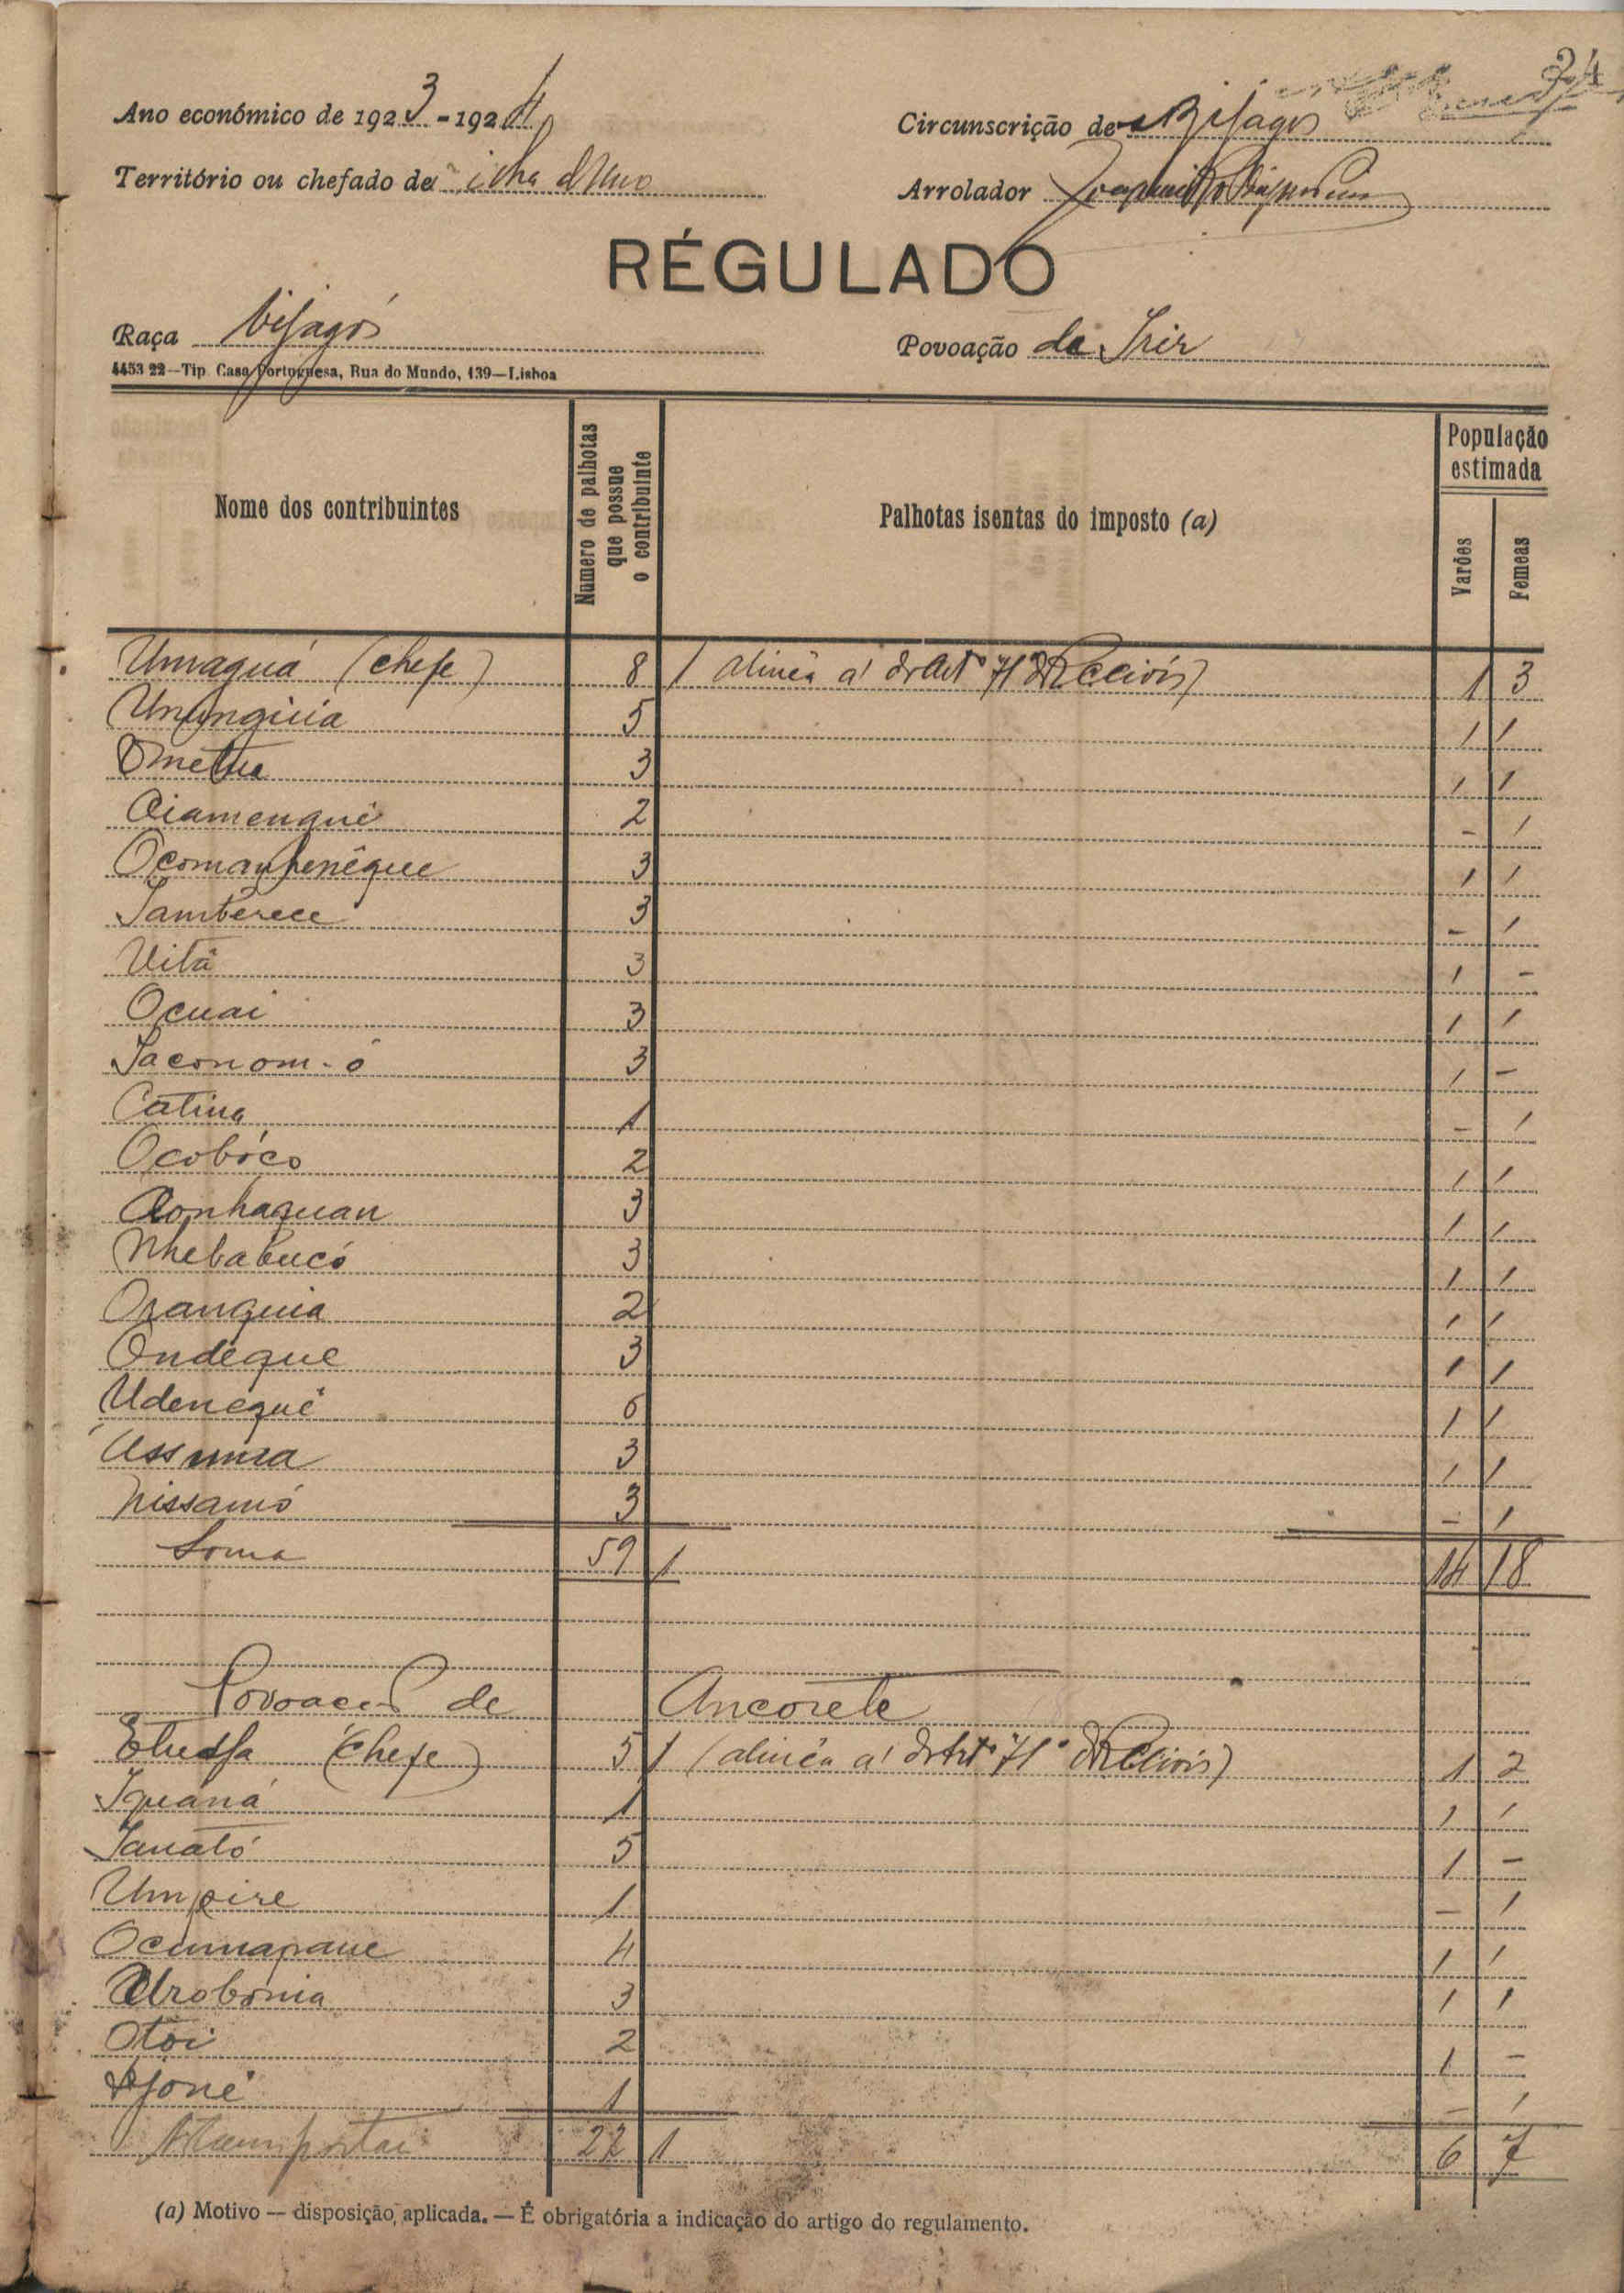 24
Ano económico de 1923-1924
Circunscrição de Bijagos
Território ou chefado de ilha d'Uno
Arrolador Joaquim
RÉGULADO
Raça bijagós
Povoação de Irir
4453 22—Tip. Casa Portuguesa, Rua do Mundo, 139—Lisboa
Nome dos contribuintes
Numero de palhotas que possue o contribuinte
Palhotas isentas do imposto (a)
População estimada
Varões
Femeas
Umaguá (chefe) 8 1 alinea a) do Art.º 71 1 3
5 1 1
Ometue 3 1 1
Ciamenguê 2 - 1
3 1 1
Tamberece 3 - 1
Vitâ 3 1 -
Ocuai 3 1 1
Jaconom-ó 3 1 -
Catina 1 - 1
Ocobóco 2 1 1
Conhaguan 3 1 1
Nhebabucó 3 1 1
Oranguia 2 1 1
Ondéque 3 1 1
Udenequê 6 1 1
3 1 1
Nissamó 3 - 1
Soma 59 1 14 18
Povoação de Ancorete
(chefe) 5 1 (alinea a) do Art.º 71º 1 2
Iguaná 1 1 1
Janató 5 1 -
Umpire 1 - 1
4 1 1
Urobónia 3 1 1
Otoi 2 1 -
1 - 1
A transportar 22 1 6 7
(a) Motivo — disposição aplicada. — É obrigatória a indicação do artigo do regulamento.